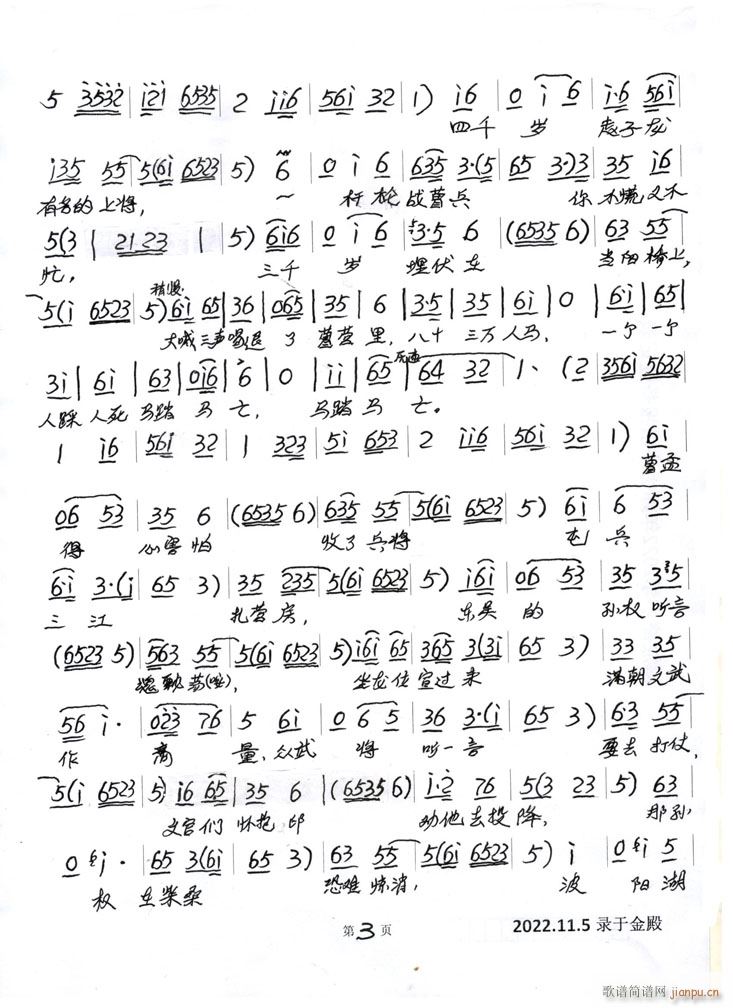 5 3532 | i2i 6535 | 2 ii6 | 56i 32 | 1) i6 | 0 i 6 | i·6 56i |
四千 岁 赵子龙
i35 55 | 5(6i 6523 | 5) 6 | 0 i 6 | 635 3·(5 | 65 3·)3 | 35 i6 |
有名的 上将, 一 杆枪 战曹兵 你 不慌 又不
5(3 | 2123 | 5) 6i6 | 0 i 6 | 3·5 6 | (6535 6) | 63 55 |
忙, 三千 岁 埋伏在 当阳 桥上,
稍慢
5(i 6523 | 5) 6i 65 | 36 | 065 | 35 | 6 | 3·5 | 35 | 6i | 0 | 6·i | 65 |
大喊 三声 喝退 了 曹营 里, 八十 三万 人马, 一个 一个
3i | 6i | 63 | 0i6 | 6 | 0 | ii | 65 | 64 32 | 1· (2 | 356i 5632 |
人踩 人死 马踏 马 亡, 马踏 马 亡。
1 i6 | 56i 32 | 1 323 | 5i 653 | 2 ii6 | 56i 32 | 1) 6i |
曹孟
06 53 | 35 6 | (6535 6) | 635 55 | 5(6i 6523 | 5) 6i | 6 53 |
得 心害怕 收了 兵将 屯 兵
6·i 3·(i | 65 3) | 35 235 | 5(6i 6523 | 5) i6i | 06 53 | 35 3 5 |
三 江 扎营 房, 东吴 的 孙权 听音
(6523 5) | 563 55 | 5(6i 6523 | 5) i6i 65 | 365 3(3i | 65 3) | 33 35 |
坐龙位 宣过 来 满朝 文武
56 i· | 023 76 | 5 6i | 0 6 5 | 36 3·(i | 65 3) | 6·3 55 |
作 商 量, 众武 将 听一 音 要去 打仗,
5(i 6523 | 5) i6 65 | 35 6 | (6535 6) | i·2 76 | 5(3 23 | 5) 63 |
文官们 怀抱 印 劝他 去投 降, 那孙
0 i· | 65 3(6i | 65 3) | 63 55 | 5(6i 6523 | 5) i | 0 i 5 |
权 在柴桑 恐难 惊消, 波 阳湖
第 3 页
2022.11.5 录于金殿
歌谱简谱网
jianpu.cn